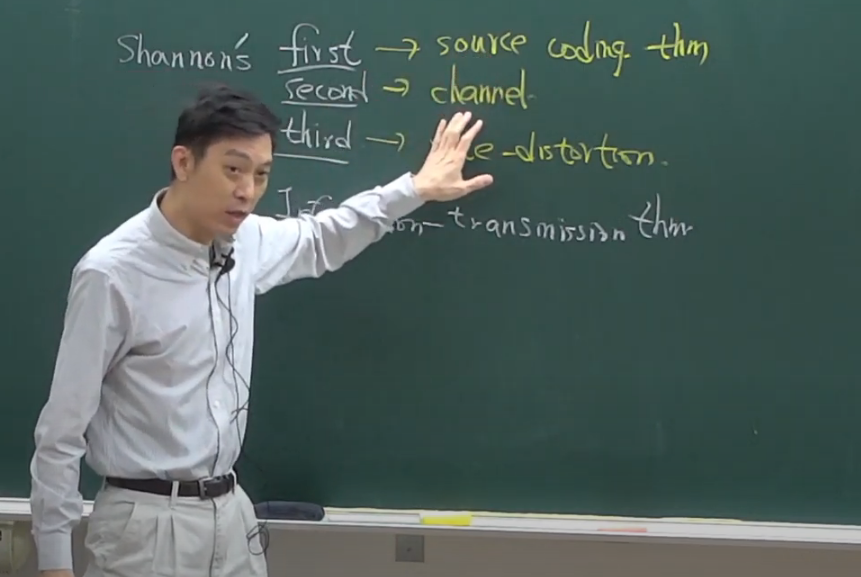 Shannon's first → source coding thm
second → channel
third → -distortion.
-transmission thm